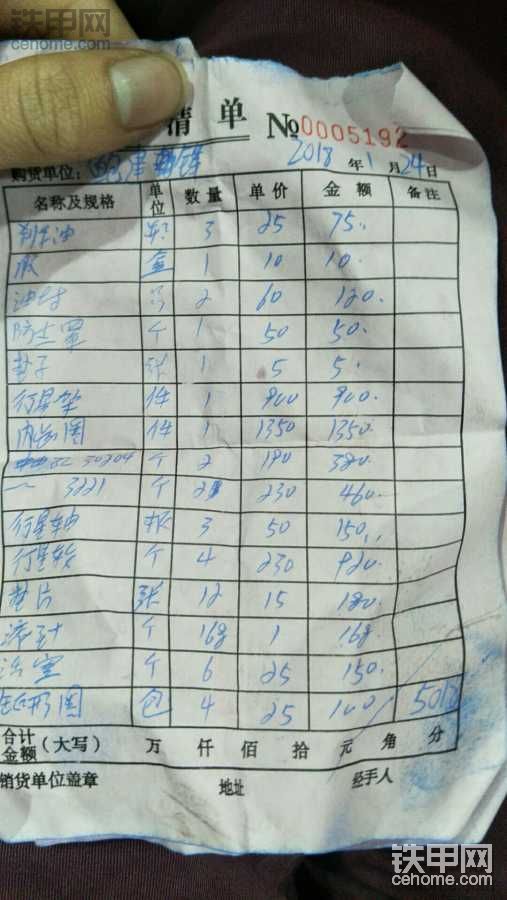 铁甲网
cehome.com
清单 №0005192
购货单位: 2018年1月24日
名称及规格 单位 数量 单价 金额 备注
刹车油 瓶 3 25 75
胶 盒 1 10 10
油封 2 60 120
防尘罩 个 1 50 50
垫子 张 1 5 5
行星架 件 1 900 900
内齿圈 件 1 1350 1350
30204 个 2 190 380
3221 个 2 230 460
行星轴 根 3 50 150
行星轮 个 4 230 920
垫片 张 12 15 180
滚针 个 168 1 168
个 6 25 150
O形圈 包 4 25 100
合计金额(大写) 万 仟 佰 拾 元 角 分
销货单位盖章 地址 经手人
铁甲网
cehome.com